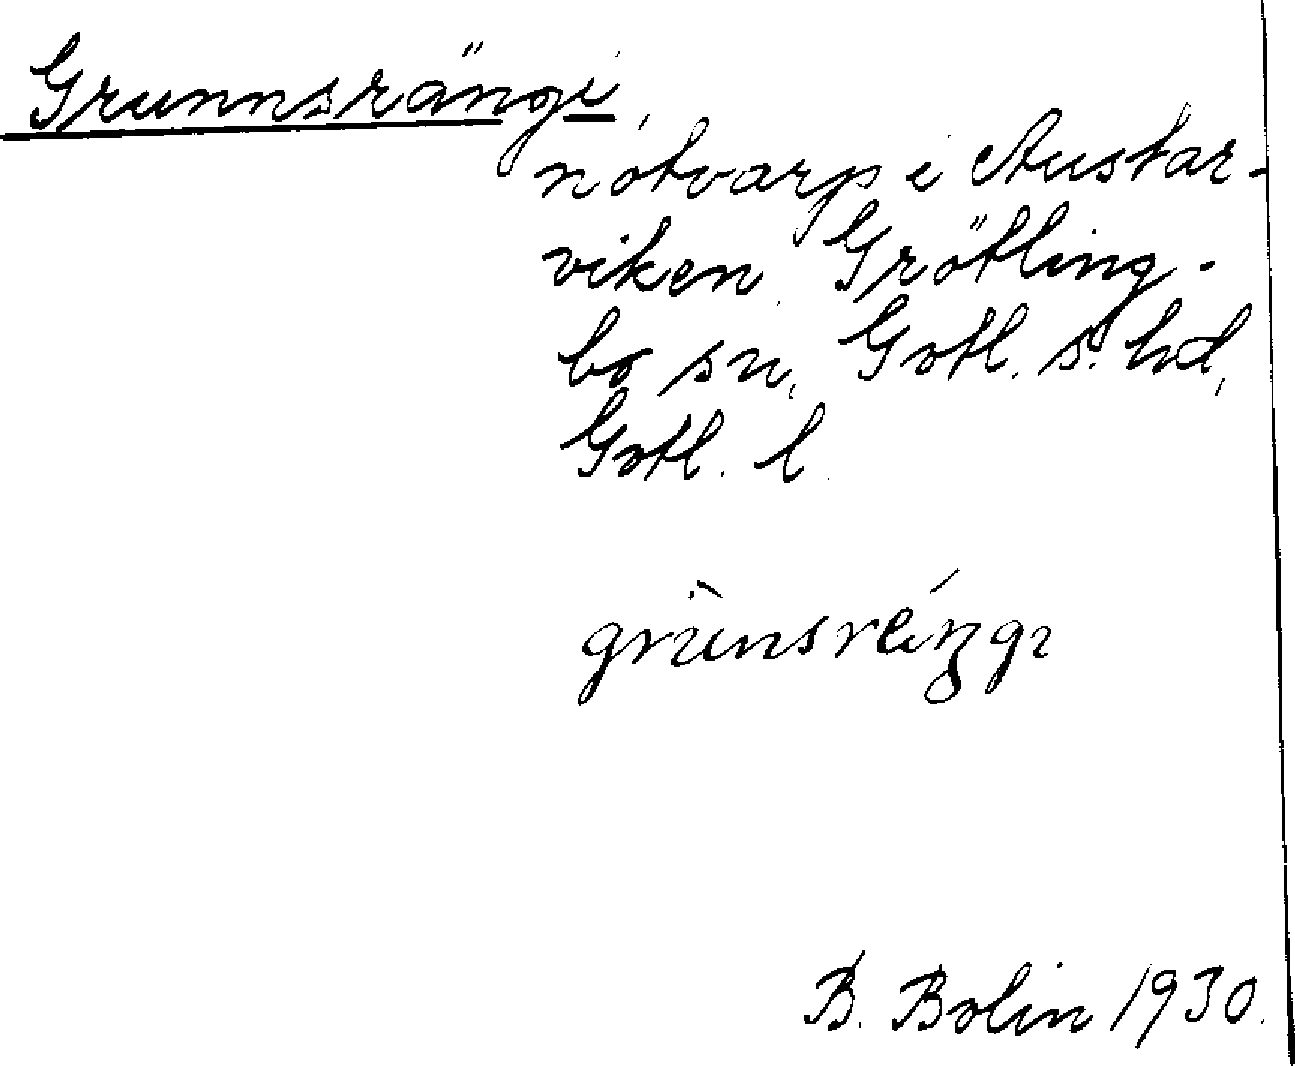 Grunnsrängi,
notvarp i Austar-
viken, Grötling-
bo sn, Gotl. s. hd,
Gotl. l.
grùnsréi̯ŋgɪ
B. Bolin 1930.